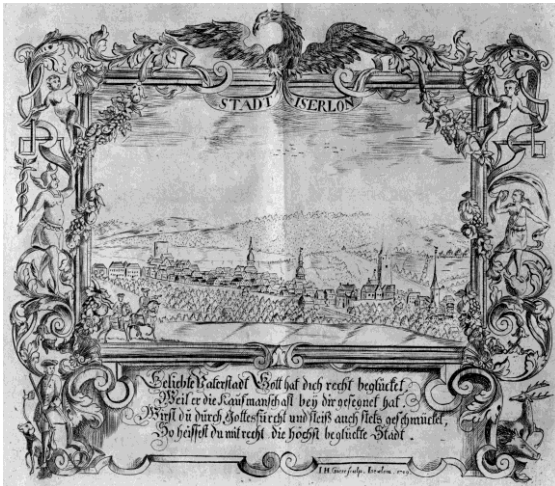 STADT ISERLON
Geliebte Vaterstadt Gott hat dich recht beglücket,
Weil er die Kaufmanschaft bey dir gesegnet hat.
Wirst dü dürch Gottesfürcht und fleiß auch stets geschmücket,
So heissest du mit recht die höchst beglückte Stadt.
I H sculp. Iserlon